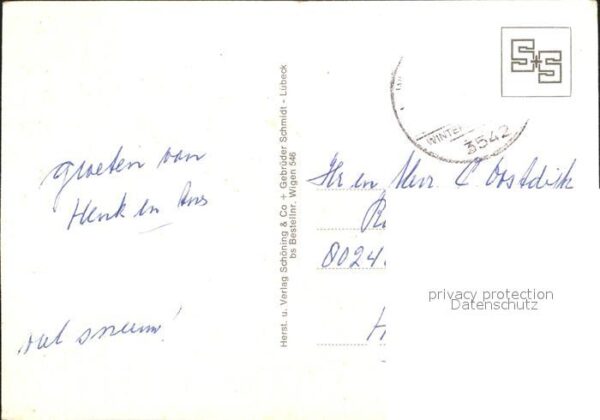 groeten van
Henk en Ans
veel sneeuw!
Herst. u. Verlag Schöning & Co + Gebrüder Schmidt - Lübeck
bs Bestellnr. Wigen 546
S+S
WINTER
3542
Hr en Mevr C Oostdijk
R
8024
H
privacy protection
Datenschutz